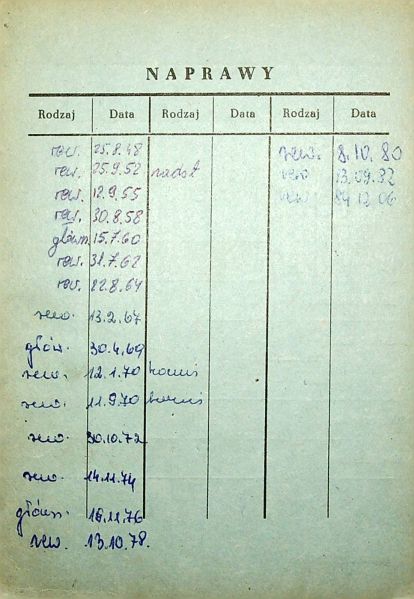 NAPRAWY
Rodzaj Data Rodzaj Data Rodzaj Data
rew. 25.8.48
rew. 25.9.52
rew. 12.9.55
rew. 30.8.58
główn. 15.7.60
rew. 31.7.62
rew. 22.8.64
rew. 13.2.67
główn. 30.4.69
rew. 12.1.70
rew. 11.9.70
rew. 30.10.72
rew. 14.11.74
główn. 18.11.76
rew. 13.10.78.
rew. 8.10.80
rew 13.09.82
rew 84.12.06